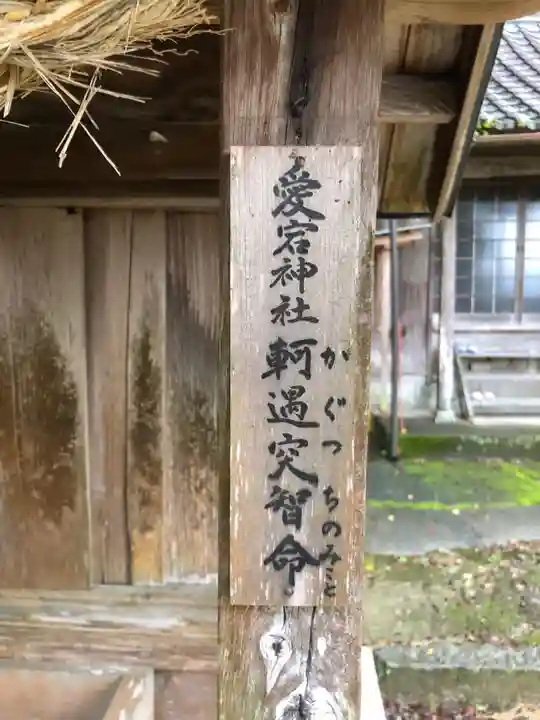 愛宕神社 軻遇突智命
かぐつちのみこと